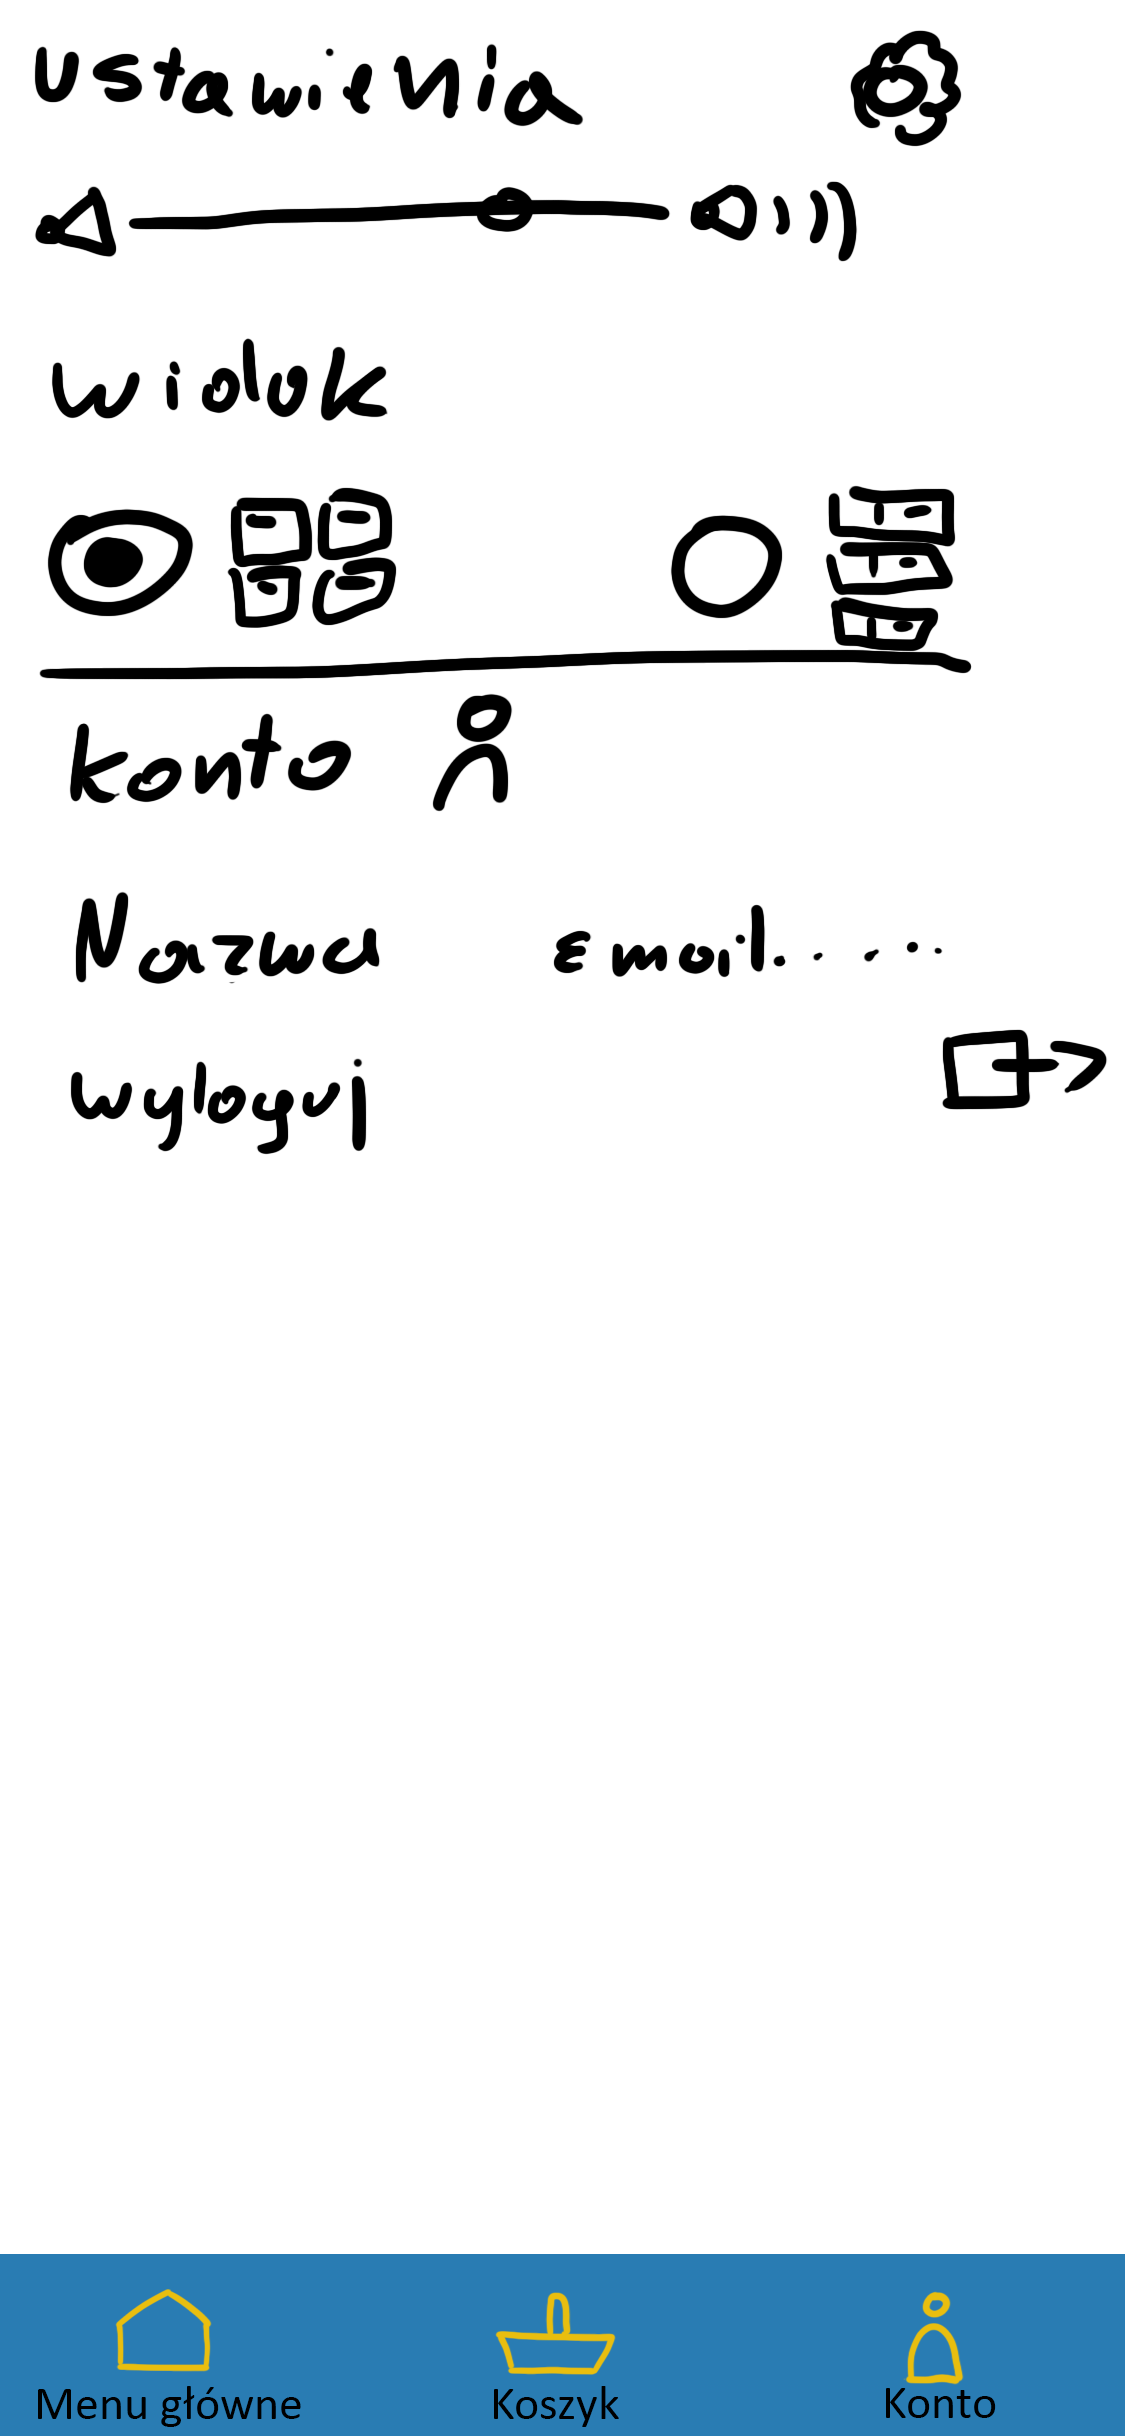 Ustawienia
widok
konto
Nazwa email.....
wyloguj
Menu główne Koszyk Konto